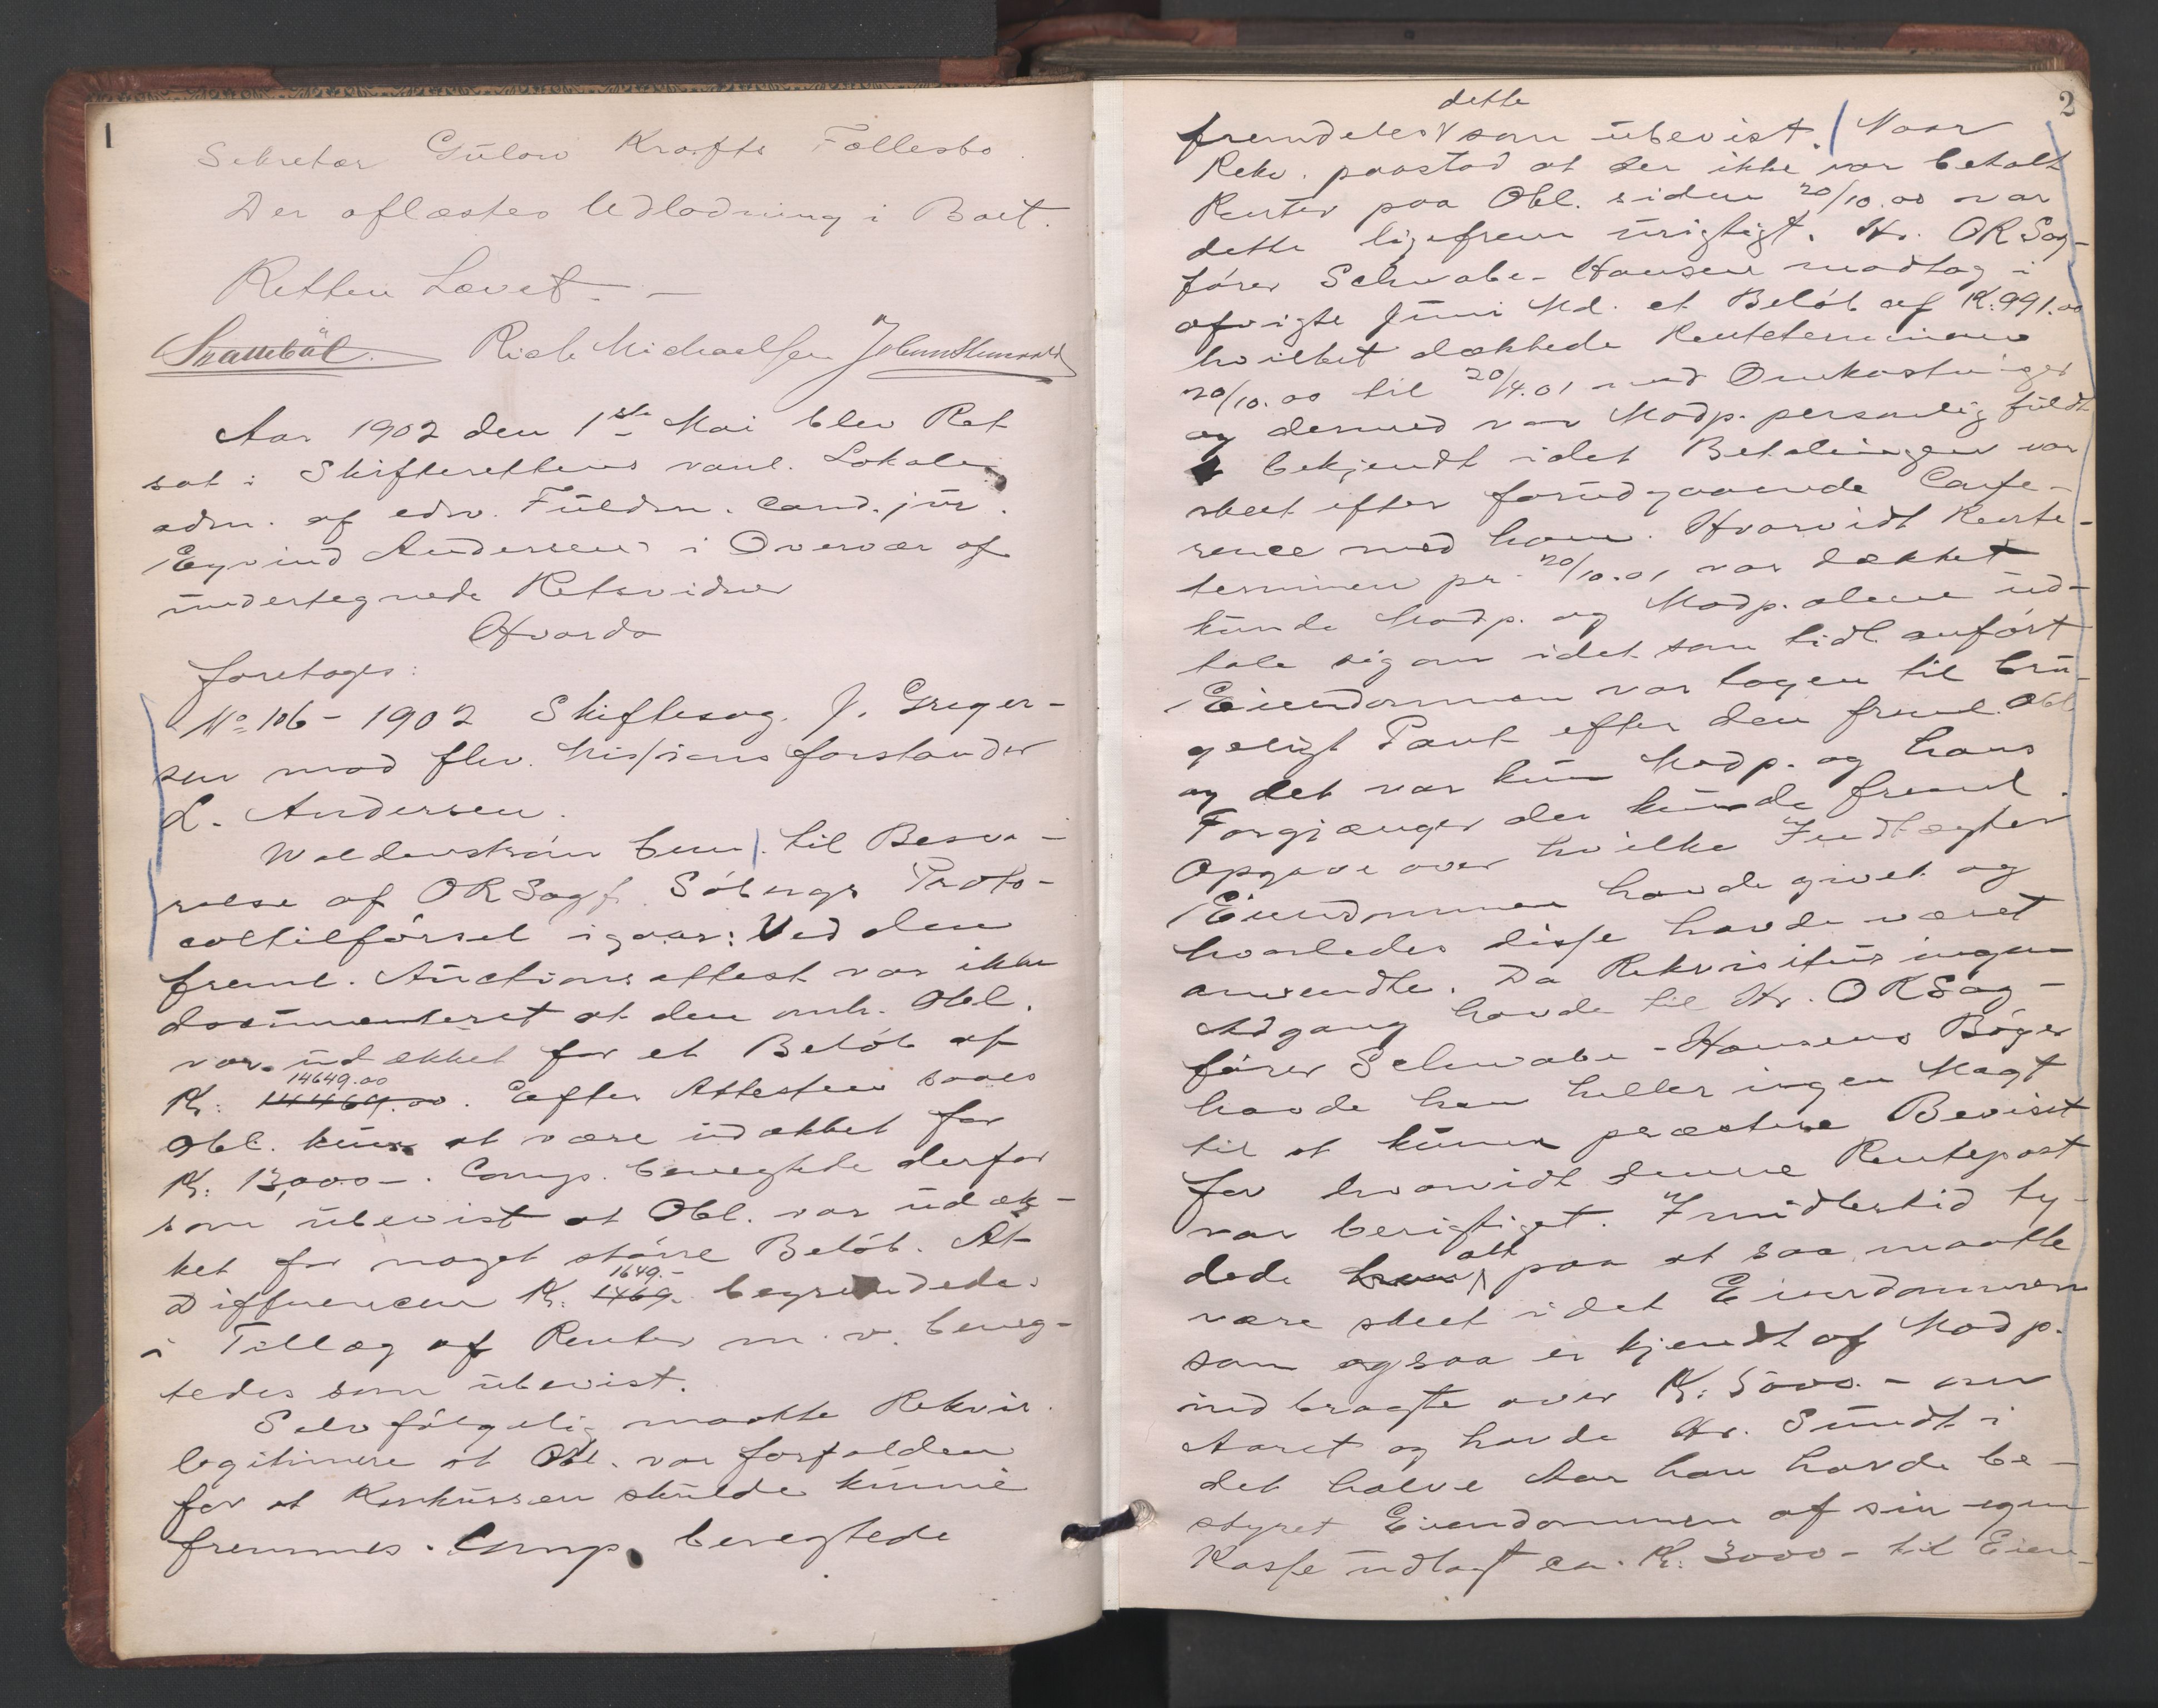 1
Sekretær Gülow Krafts Fællesbo.
Der oflæstes Udlodning i Boet.
Retten hævet. —
Rich Michaelsen
Aar 1902 den 1ste Mai blev Ret
sat i Skifterettens vanl. Lokale
adm. af edsv. Füldm. Cand. jur.
Eyvind Andersen i Overvær af
undertegnede Retsvidner
Hvorda
foretoges:
No 106 - 1902 Skiftesag. J. Greger-
sen mod fhv. Missionsforstander
L. Andersen.
Waldenstrøm bem. til Besva-
relse af ORSagf. Söbergs Proto-
coltilförsel igaar: Ved den
freml. Auctionsattest var ikke
documenteret at den omh. Obl.
var udækket for et Belöb af
14649.00
Kr: 14469.00. Efter Attesten saaes
Obl. kun at være udækket for
Kr: 13,000 -. Comp. benegtede derfor
som übevist at Obl. var udæk-
ket for noget större Belöb. At
1649.-
Differencen Kr. 1469. begrundede
i Tillæg af Renter m. v. beneg-
tedes som übevist.
Selvfölgelig maatte Rekvir.
legitimere at Obl. var forfalden
for at Konkursen skulde kunne
fremmes. Comp. benegtede
2
dette
fremdeles V som übevist. Naar
Rekv. paastod at der ikke var betalt
Renter paa Obl. siden 20/10.00 var
dette ligefrem urigtigt. Hr. ORSag-
förer Schwabe-Hansen modtog i
afvigte Juni Md. et Belöb af K: 991.00
hvilket dækkede Renteterminen
20/10.00 til 20/4.01 med Omkostninger
og dermed var Modp. personlig fuldt
bekjendt idet Betalingen var
skeet efter forudgaaende Confe-
rence med ham. Hvorvidt Rente-
terminen pr. 20/10.01 var dækket
kunde Modp. og Modp. alene ud-
tale sig om idet som tidl. anfört
Eiendommen var tagen til bru-
geligt Pant efter den freml. Obl
og det var kun Modp. og hans
Forgjænger der kunde freml.
Opgave over hvilke Indtægter
Eiendommen havde givet og
hvorledes disse havde været
anvendte. Da Rekvisitus ingen
Adgang havde til Hr. ORSag-
förer Schwabe-Hansens Böger
havde han heller ingen Magt
til at kunne præstere Beviset
for hvorvidt denne Rentepost
var berigtiget. Imidlertid ty-
alt
dede paa at saa maatte
være skeet idet Eiendommen
som ogsaa er kjendt af Modp.
indbragte over Kr: 5000.- om
Aaret og havde Hr. Sundt i
det halve Aar han havde be-
styret Eiendommen af sin egen
Kasse udlagt ca. Kr: 3000 - til Eien-